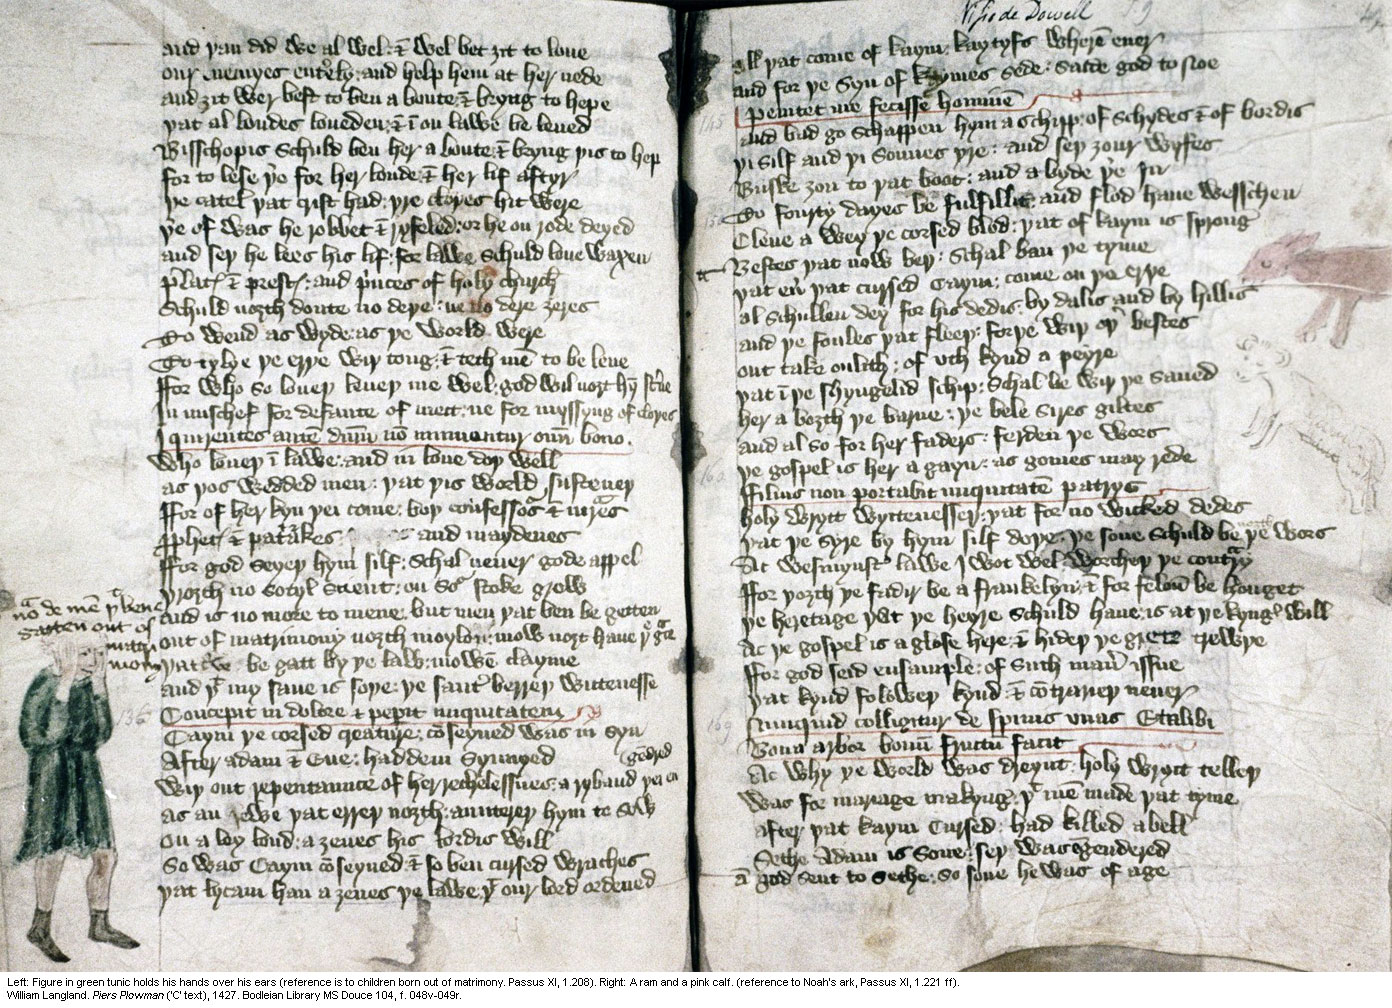 and þan did we al wel & wel bet ȝit to loue
our enemyes enterly and help hem at her nede
and ȝit wer best to ben a boute & bryng to hepe
þat al londes loueden & in on lawe be leued
Bisschopis schuld ben her a boute & bryng þis to hep
for to lese þer for her londe & her lif aftyr
þe catel þat crist had þre cloþes hit were
þer of was he robbet & ryfeled or he on rode deyed
and seþ he lees his lif for lawe schuld loue waxen
prelates & prestes and princes of holy church
schuld noȝth doute no deþe ne no dere ȝeres
To wend as wyde as þe world were
To tylye þe erþe wiþ tong & tech men to be leue
ffor who so loueþ leueþ me wel god wil noȝt hym sterue
In mischef for defaute of mett ne for myssyng of cloþes
Inquirentes autem dominum non minuentur omni bono
Who loueþ in lawe and in loue doþ well
as þos wedded men þat þis world susteneþ
ffor of her kyn þei come boþ confessors & martres
prophetes & patriarkes and maydenes
ffor god seyeþ hym silf schal neuer gode appel
þrogh no sotyl scient on sour stoke grow
and is no more to mene but men þat ben be geten
out of matrimony noȝth moyloure mow noȝt haue þe grace
þat be gatt by þe law mowen clayme
and þat my saue is soþe þe sauter berreþ wittenesse
Concepit in dolore & peperit iniquitatem
Caym þe corsed creature conseyued was in syn
After adam & Eue haddem synnyed
Wiþ out repentaunce of her rechelessnes a rybaud þei en
gendred
as an þat erreþ noȝth auntereþ hym to sow
on a ley lond a ȝenes his lordis will
So was Caym conseyued & so ben cursed wraches
þat lycam han a ȝenes þe lawe þat our lord ordened
nota de men þat bene
getten out of
matri
mony
136
Visio de Dowell
all þat come of kaym kaytyfs where euer
and for þe syn of kaymes sede saide god to noe
Penitet me fecisse hominem
and bad go schappen hym a schipp of schydes & of bordis
þi silf and þi sonnes þre and seþ ȝour wyfes
Buske ȝou to þat boot and a byde þer in
To fourty dayes be fulfillit and flod haue wesschen
Clene a wey þe corsed blod þat of kaym is sprong
Bestes þat now beþ schal ban þe tyme
þat euer þat cursed Caym come on þe erþe
al schullen dey for his dedis by dalis and by hillis
and þe foules þat fleeþ forþe wiþ oþer bestes
out take onlich of vch kynd a peyre
þat in þe shyngelid schip schal be wiþ þe saued
her a boȝth þe barne þe bele sires giltes
and al so for her faders ferden þe wors
þe gospel is her a gayn as gomes may rede
ffilius non portabit iniquitatem patrys
holy wrytt wyttenesseþ þat for no wicked dedes
þat þe syre by hym silf doþe þe sone schuld be þe wors
Ac wesmynster lawe I wot wel worcheþ þe contrary
ffor þoȝth þe fadir be a frankelyn & for felon be honget
þe heretage þat þe heyre schuld haue is at þe kynges will
Ac þe gospel is a glose here & hideþ þe grete trewþe
ffor god seid ensample of such maner issue
þat kynd foloweþ kynd & contrareþ neuer
Numquid colligitur de spinis vuas Et alibi
Bona arbor bonum fructum facit
Ac why þe world was dreynt holy wrytt telleþ
Was for mariage makyng þat me made þat tyme
after þat kaym Cursed had killed abell
Sethe Adam is sone seþ was gendered
& god sent to Sethe so sone he was of age
145
160
169
Left: Figure in green tunic holds his hands over his ears (reference is to children born out of matrimony. Passus XI, 1.208). Right: A ram and a pink calf. (reference to Noah's ark, Passus XI, 1.221 ff).
William Langland. Piers Plowman ('C' text), 1427. Bodleian Library MS Douce 104, f. 048v-049r.